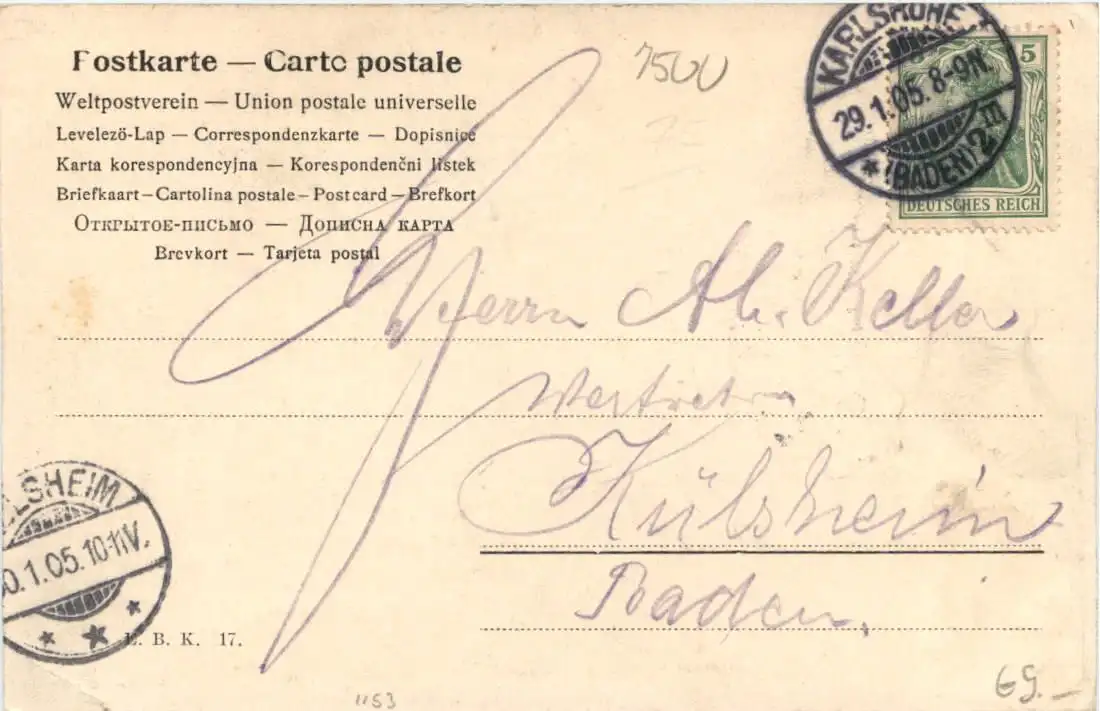 Postkarte — Carte postale
Weltpostverein — Union postale universelle
Levelezö-Lap — Correspondenzkarte — Dopisnice
Karta korespondencyjna — Korespondenčni listek
Briefkaart — Cartolina postale — Postcard — Brefkort
Открытое-письмо — Дописна карта
Brevkort — Tarjeta postal
7500
KARLSRUHE
29.1.05. 8-9N.
(BADEN) 2 III
5
DEUTSCHES REICH
Herrn Ab. Keller
Külsheim
Baden.
LSHEIM
0.1.05. 10-11V.
E. B. K. 17.
1153
69.—